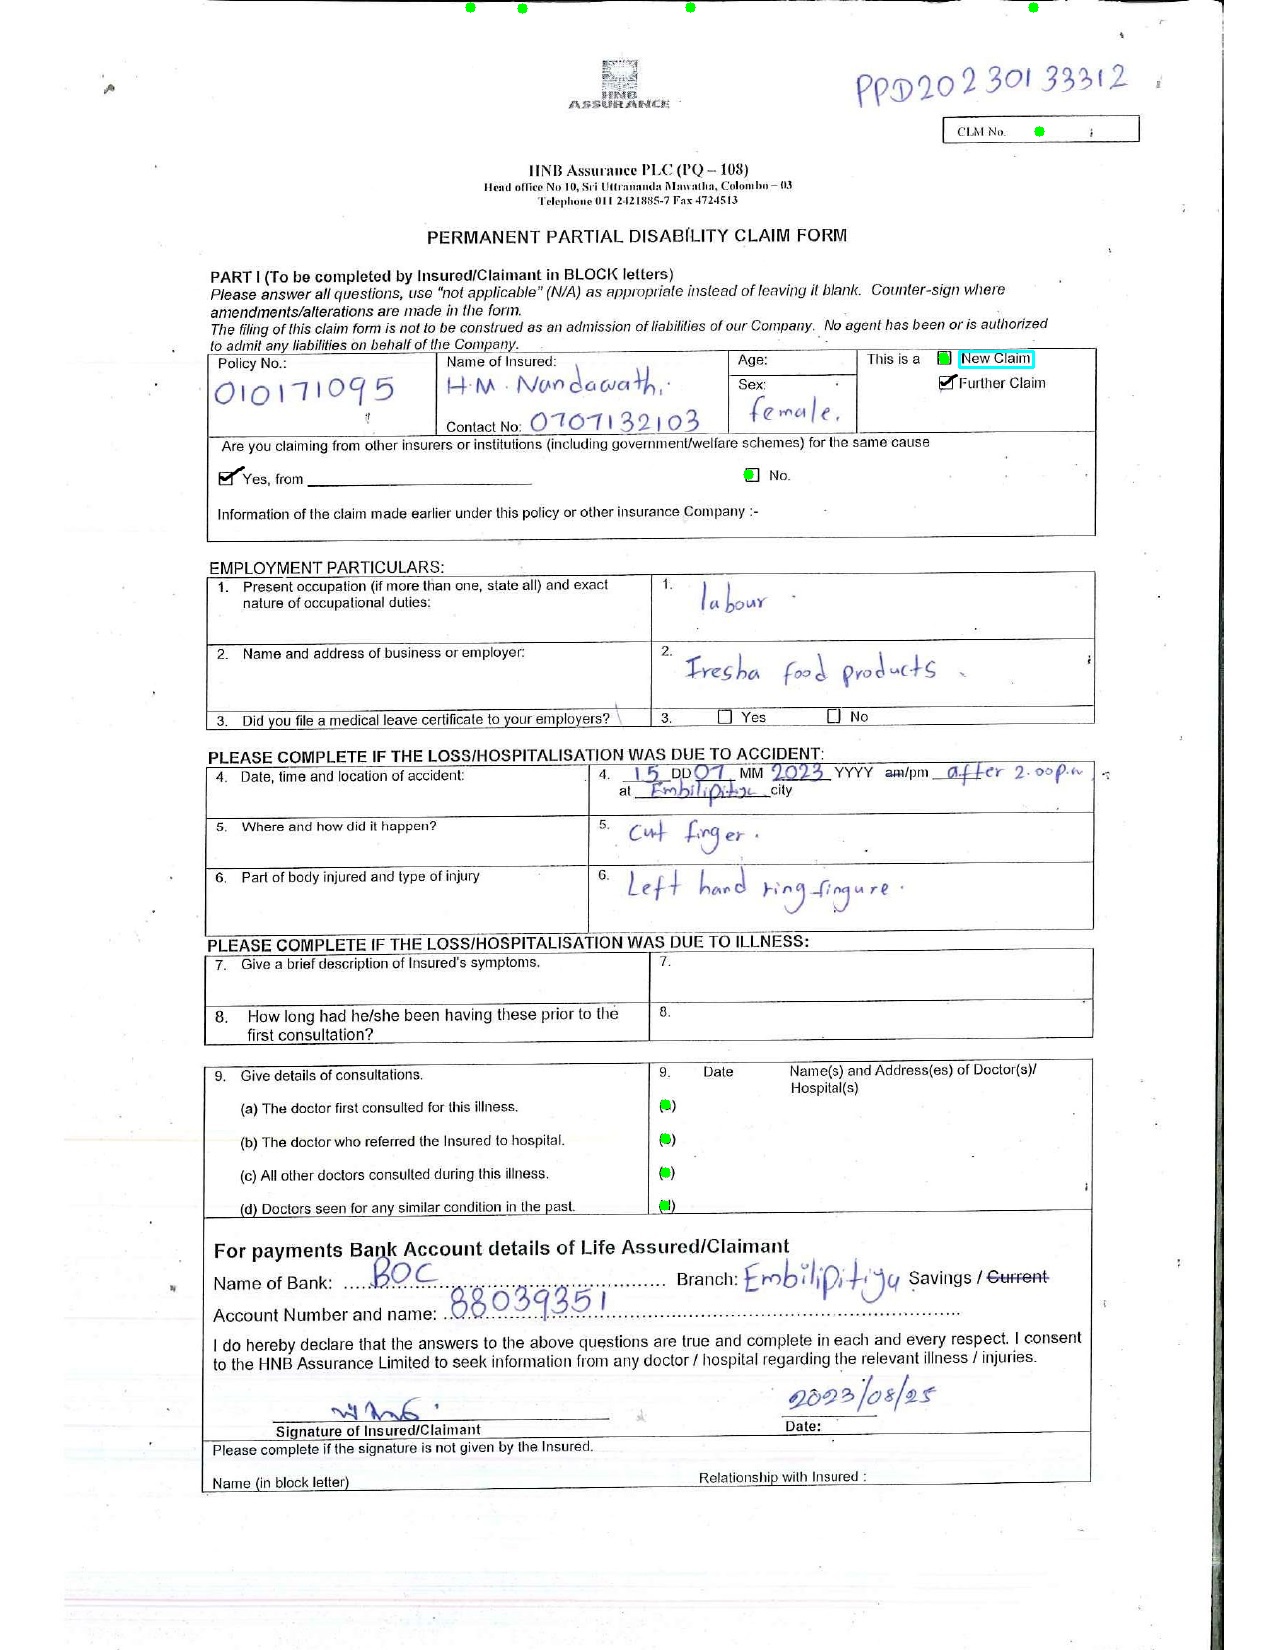 HNB
ASSURANCE
PPD20230133312
CLM No.
HNB Assurance PLC (PQ – 108)
Head office No 10, Sri Uttrananda Mawatha, Colombo – 03
Telephone 011 2421885-7 Fax 4724513
PERMANENT PARTIAL DISABILITY CLAIM FORM
PART I (To be completed by Insured/Claimant in BLOCK letters)
Please answer all questions, use "not applicable" (N/A) as appropriate instead of leaving it blank. Counter-sign where
amendments/alterations are made in the form.
The filing of this claim form is not to be construed as an admission of liabilities of our Company. No agent has been or is authorized
to admit any liabilities on behalf of the Company.
Policy No.: Name of Insured: Age: This is a New Claim
010171095 H.M. Nandawathi. Sex: Further Claim
female.
Contact No: 0707132103
Are you claiming from other insurers or institutions (including government/welfare schemes) for the same cause
Yes, from No.
Information of the claim made earlier under this policy or other insurance Company :-
EMPLOYMENT PARTICULARS:
1. Present occupation (if more than one, state all) and exact 1. labour
nature of occupational duties:
2. Name and address of business or employer: 2. Iresha food products
3. Did you file a medical leave certificate to your employers? 3. Yes No
PLEASE COMPLETE IF THE LOSS/HOSPITALISATION WAS DUE TO ACCIDENT:
4. Date, time and location of accident: 4. 15 DD 07 MM 2023 YYYY am/pm after 2.00p.m
at Embilipitya city
5. Where and how did it happen? 5. Cut finger.
6. Part of body injured and type of injury 6. Left hand ring fingure.
PLEASE COMPLETE IF THE LOSS/HOSPITALISATION WAS DUE TO ILLNESS:
7. Give a brief description of Insured's symptoms. 7.
8. How long had he/she been having these prior to the 8.
first consultation?
9. Give details of consultations. 9. Date Name(s) and Address(es) of Doctor(s)/
Hospital(s)
(a) The doctor first consulted for this illness.
(b) The doctor who referred the Insured to hospital.
(c) All other doctors consulted during this illness.
(d) Doctors seen for any similar condition in the past.
For payments Bank Account details of Life Assured/Claimant
Name of Bank: BOC Branch: Embilipitiya Savings / Current
Account Number and name: 88039351
I do hereby declare that the answers to the above questions are true and complete in each and every respect. I consent
to the HNB Assurance Limited to seek information from any doctor / hospital regarding the relevant illness / injuries.
2023/08/25
Signature of Insured/Claimant Date:
Please complete if the signature is not given by the Insured.
Name (in block letter) Relationship with Insured :